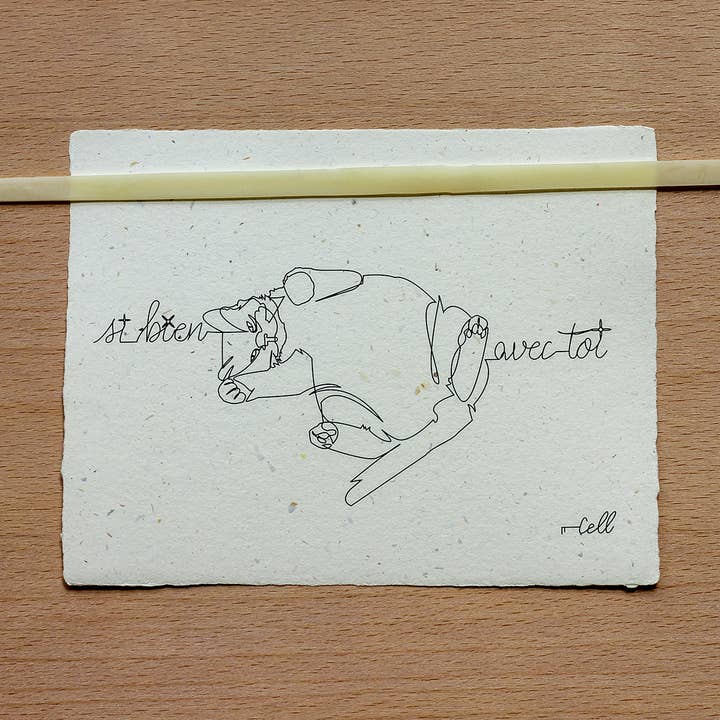 si bien avec toi
Cell